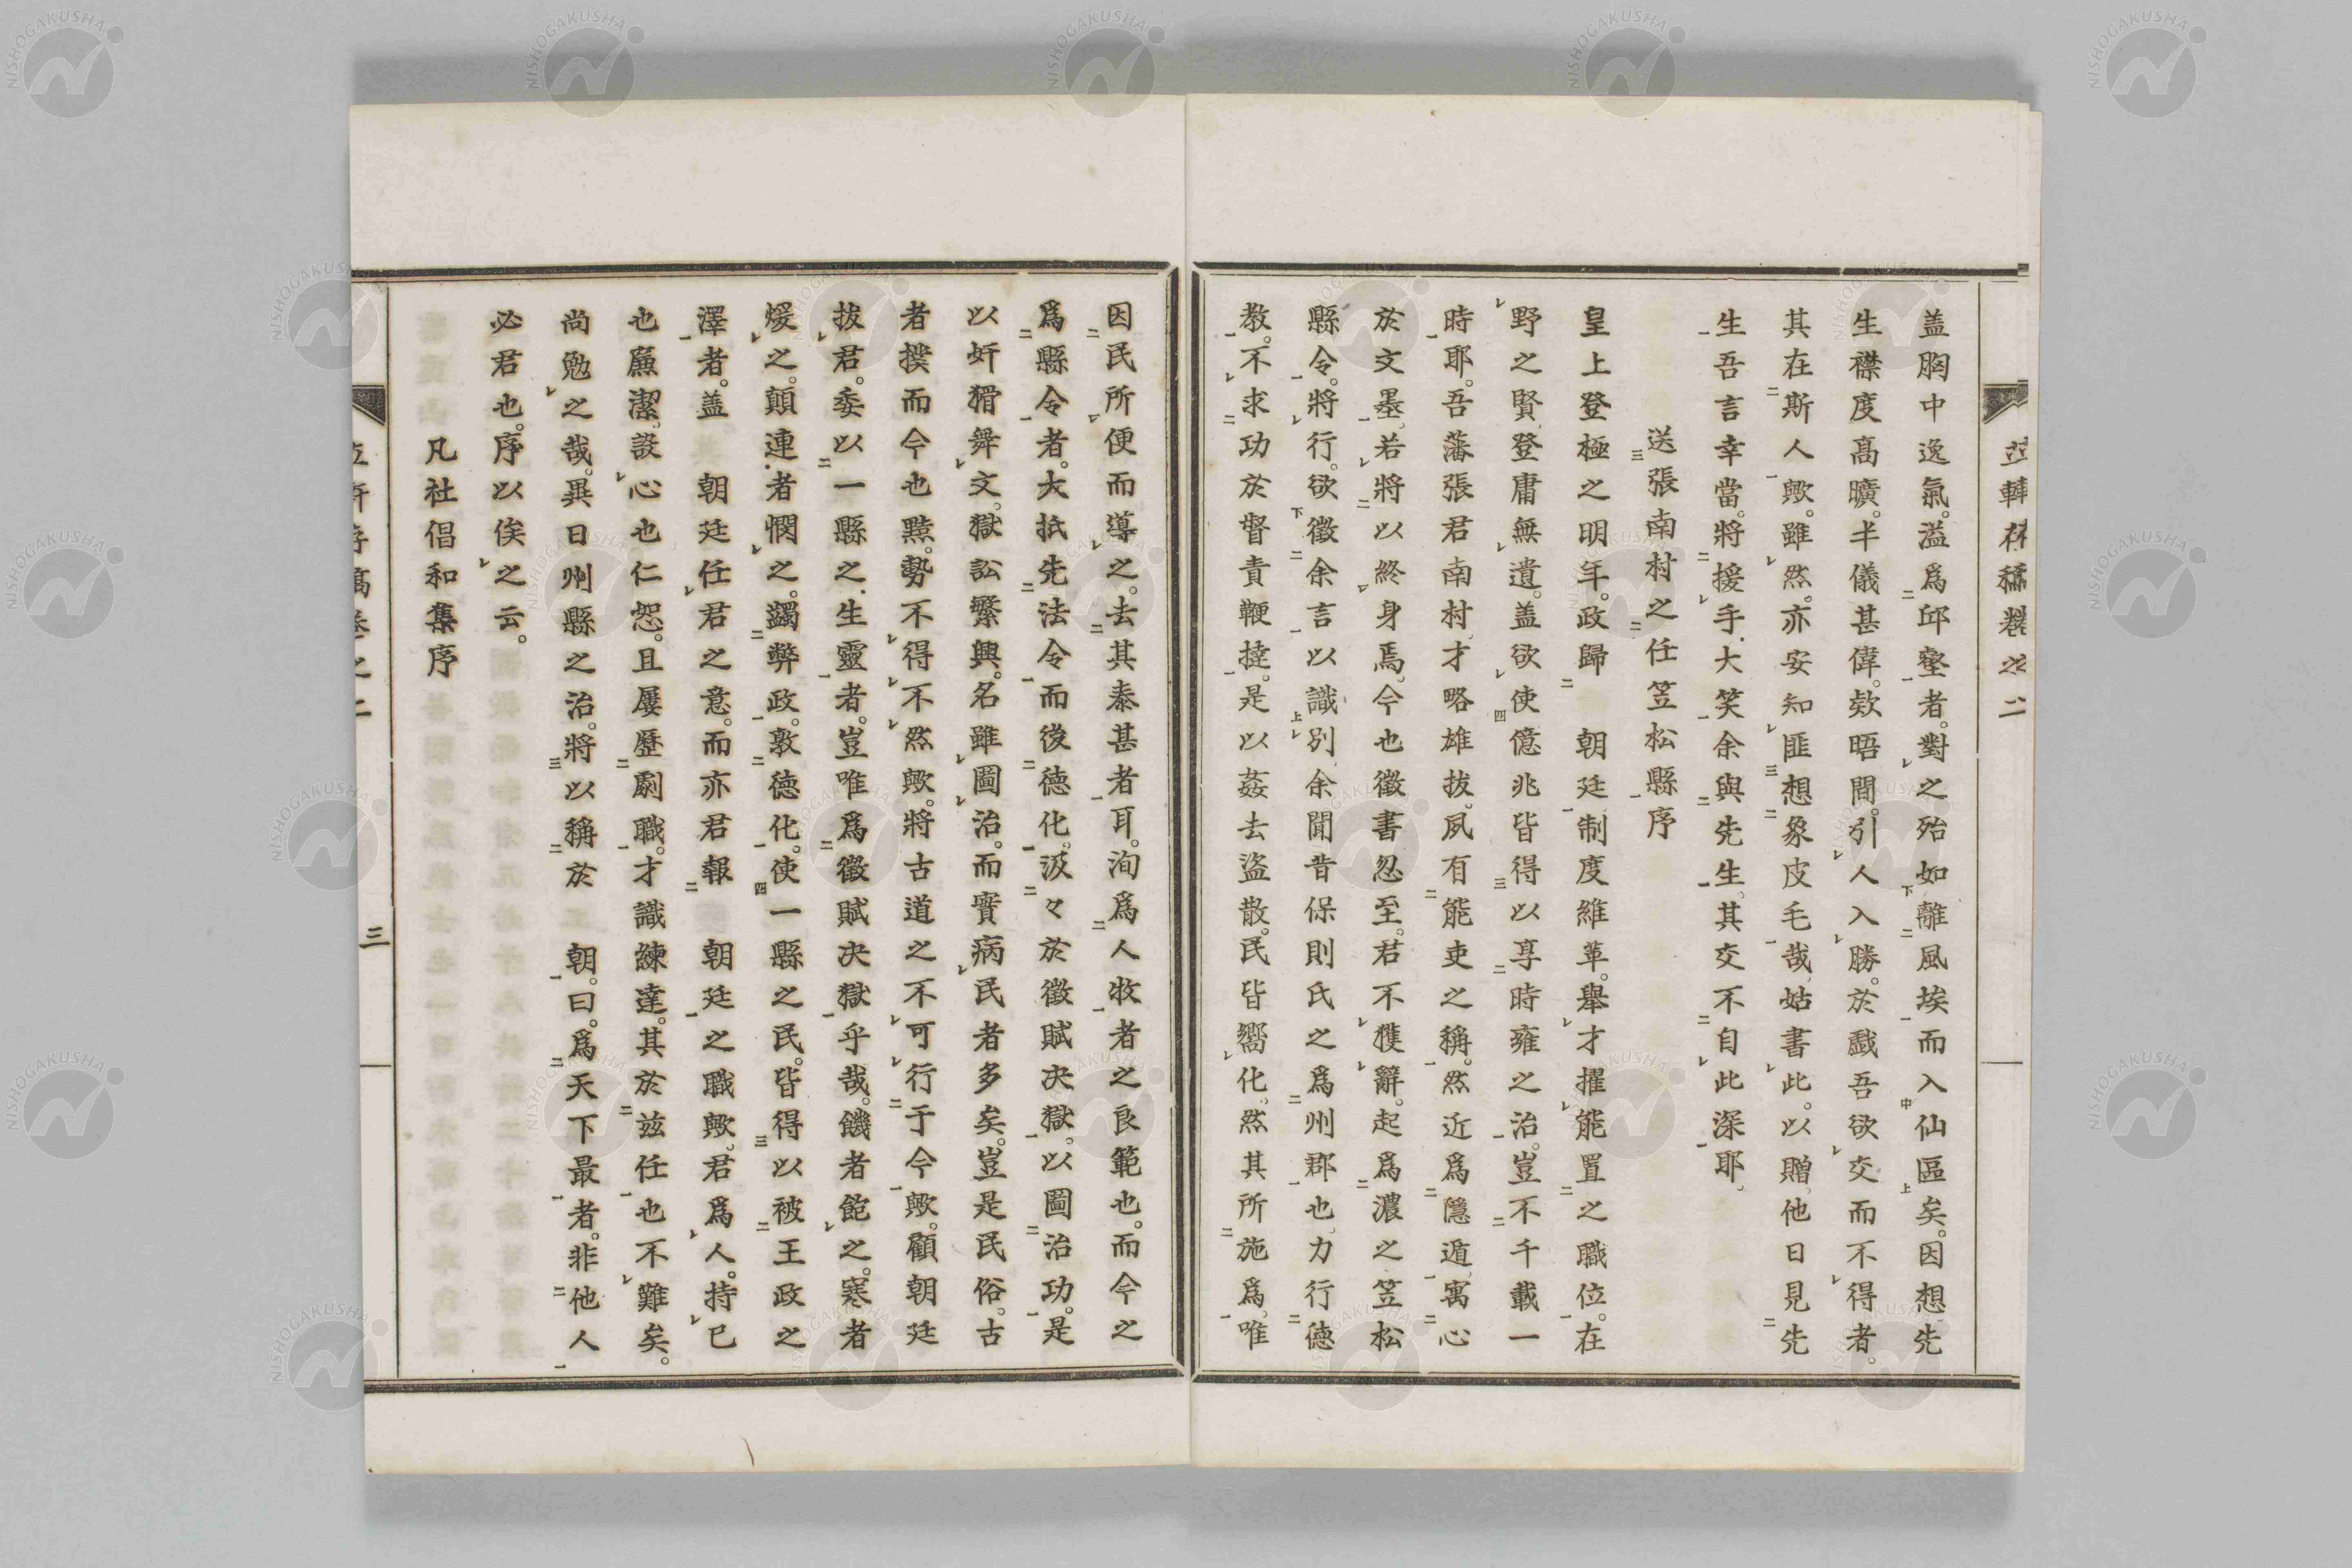 盖胸中逸氣。溢爲邱壑者。對之殆如離風埃而入仙區矣。因想先
生襟度高曠。丰儀甚偉。欵晤間。引人入勝。於戲吾欲交而不得者。
其在斯人歟。雖然。亦安知匪想象皮毛哉、姑書此。以贈、他日見先
生吾言幸當。將援手大笑余與先生。其交不自此深耶、
送張南村之任笠松縣序
皇上登極之明年。政歸 朝廷制度維革。舉才擢能置之職位。在
野之賢、登庸無遺。盖欲使億兆皆得以享時雍之治。豈不千載一
時耶。吾藩張君南村、才略雄拔。夙有能吏之稱。然近爲隱遁、寓心
於文墨、若將以終身焉。今也徵書忽至。君不獲辭。起爲濃之笠松
縣令。將行。欲徵余言以識別余聞昔保則氏之爲州郡也、力行德
教。不求功於督責鞭撻。是以姦去盜散。民皆嚮化。然其所施爲、唯
因民所便而導之。去其泰甚者耳。洵爲人牧者之良範也。而今之
爲縣令者。大抵先法令而後德化。汲々於徵賦决獄。以圖治功。是
以奸猾舞文。獄訟繁興。名雖圖治。而實病民者多矣。豈是民俗。古
者撲而今也黠。勢不得不然歟。將古道之不可行于今歟。顧朝廷
拔君。委以一縣之生靈者。豈唯爲徵賦决獄乎哉。饑者飽之。寒者
煖之。顛連者憫之。蠲弊政。敦德化。使一縣之民。皆得以被王政之
澤者。盖 朝廷任君之意。而亦君報 朝廷之職歟。君爲人。持已
也廉潔、設心也仁恕。且屢歷劇職。才識練達。其於茲任也不難矣。
尚勉之哉。異日州縣之治。將以稱於 朝。曰。爲天下最者。非他人
必君也。序以俟之云。
凡社倡和集序
三